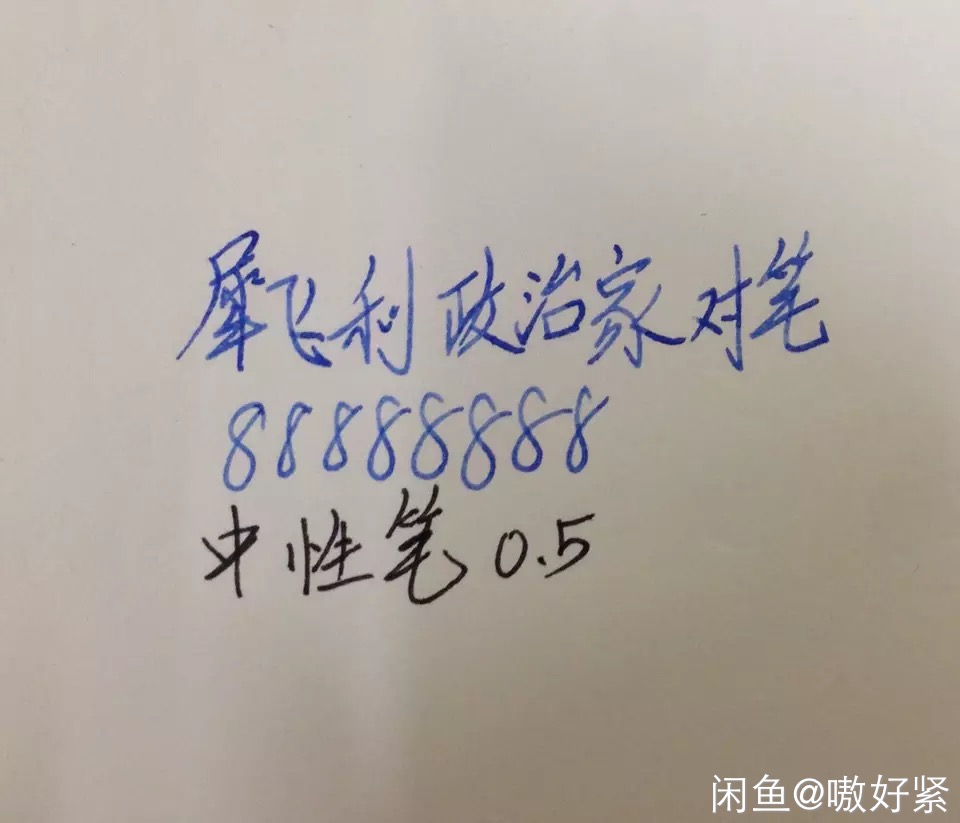 犀飞利政治家对笔
88888888
中性笔 0.5
闲鱼@嗷好紧